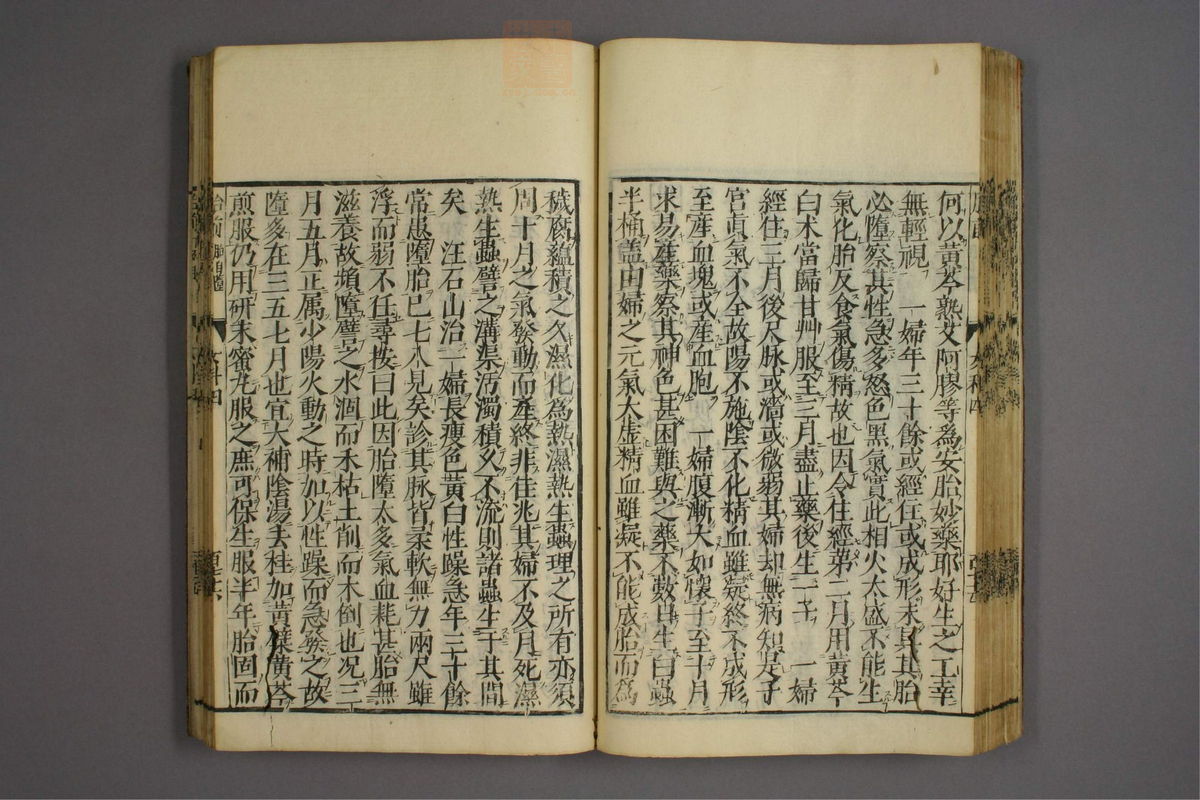 何以黃芩熟艾阿膠等爲安胎妙藥耶好生之工幸
無輕視　一婦年三十餘或經住或成形未具其胎
必墮察其性急多怒色黑氣實此相火太盛不能生
氣化胎反食氣傷精故也因令住經第二月用黃芩
白术當歸甘艸服至三月盡止藥後生一子　一婦
經住三月後尺脉或濇或微弱其婦却無病知是子
宮眞氣不全故陽不施陰不化精血雖凝終不成形
至産血塊或産血胞　一婦腹漸大如懷子至十月
求易產藥察其神色甚困難與之藥不數日生白蟲
半桶蓋由婦之元氣大虛精血雖凝不能成胎而爲
穢腐蘊積之久濕化爲熱濕熱生蟲理之所有亦須
周十月之氣發動而產終非佳兆其婦不及月死濕
熱生蟲譬之溝渠汚濁積久不流則諸蟲生于其間
矣　汪石山治一婦長瘦色黃白性躁急年三十餘
常患墮胎已七八見矣診其脉皆柔軟無力兩尺雖
浮而弱不任尋按曰此因胎墮太多氣血耗甚胎無
滋養故頻墮譬之水涸而禾枯土削而木倒也况三
月五月正属少陽火動之時加以性躁而急發之故
墮多在三五七月也宜大補陰湯去桂加黃蘗黃芩
煎服仍用研末蜜丸服之庶可保生服半年胎固而